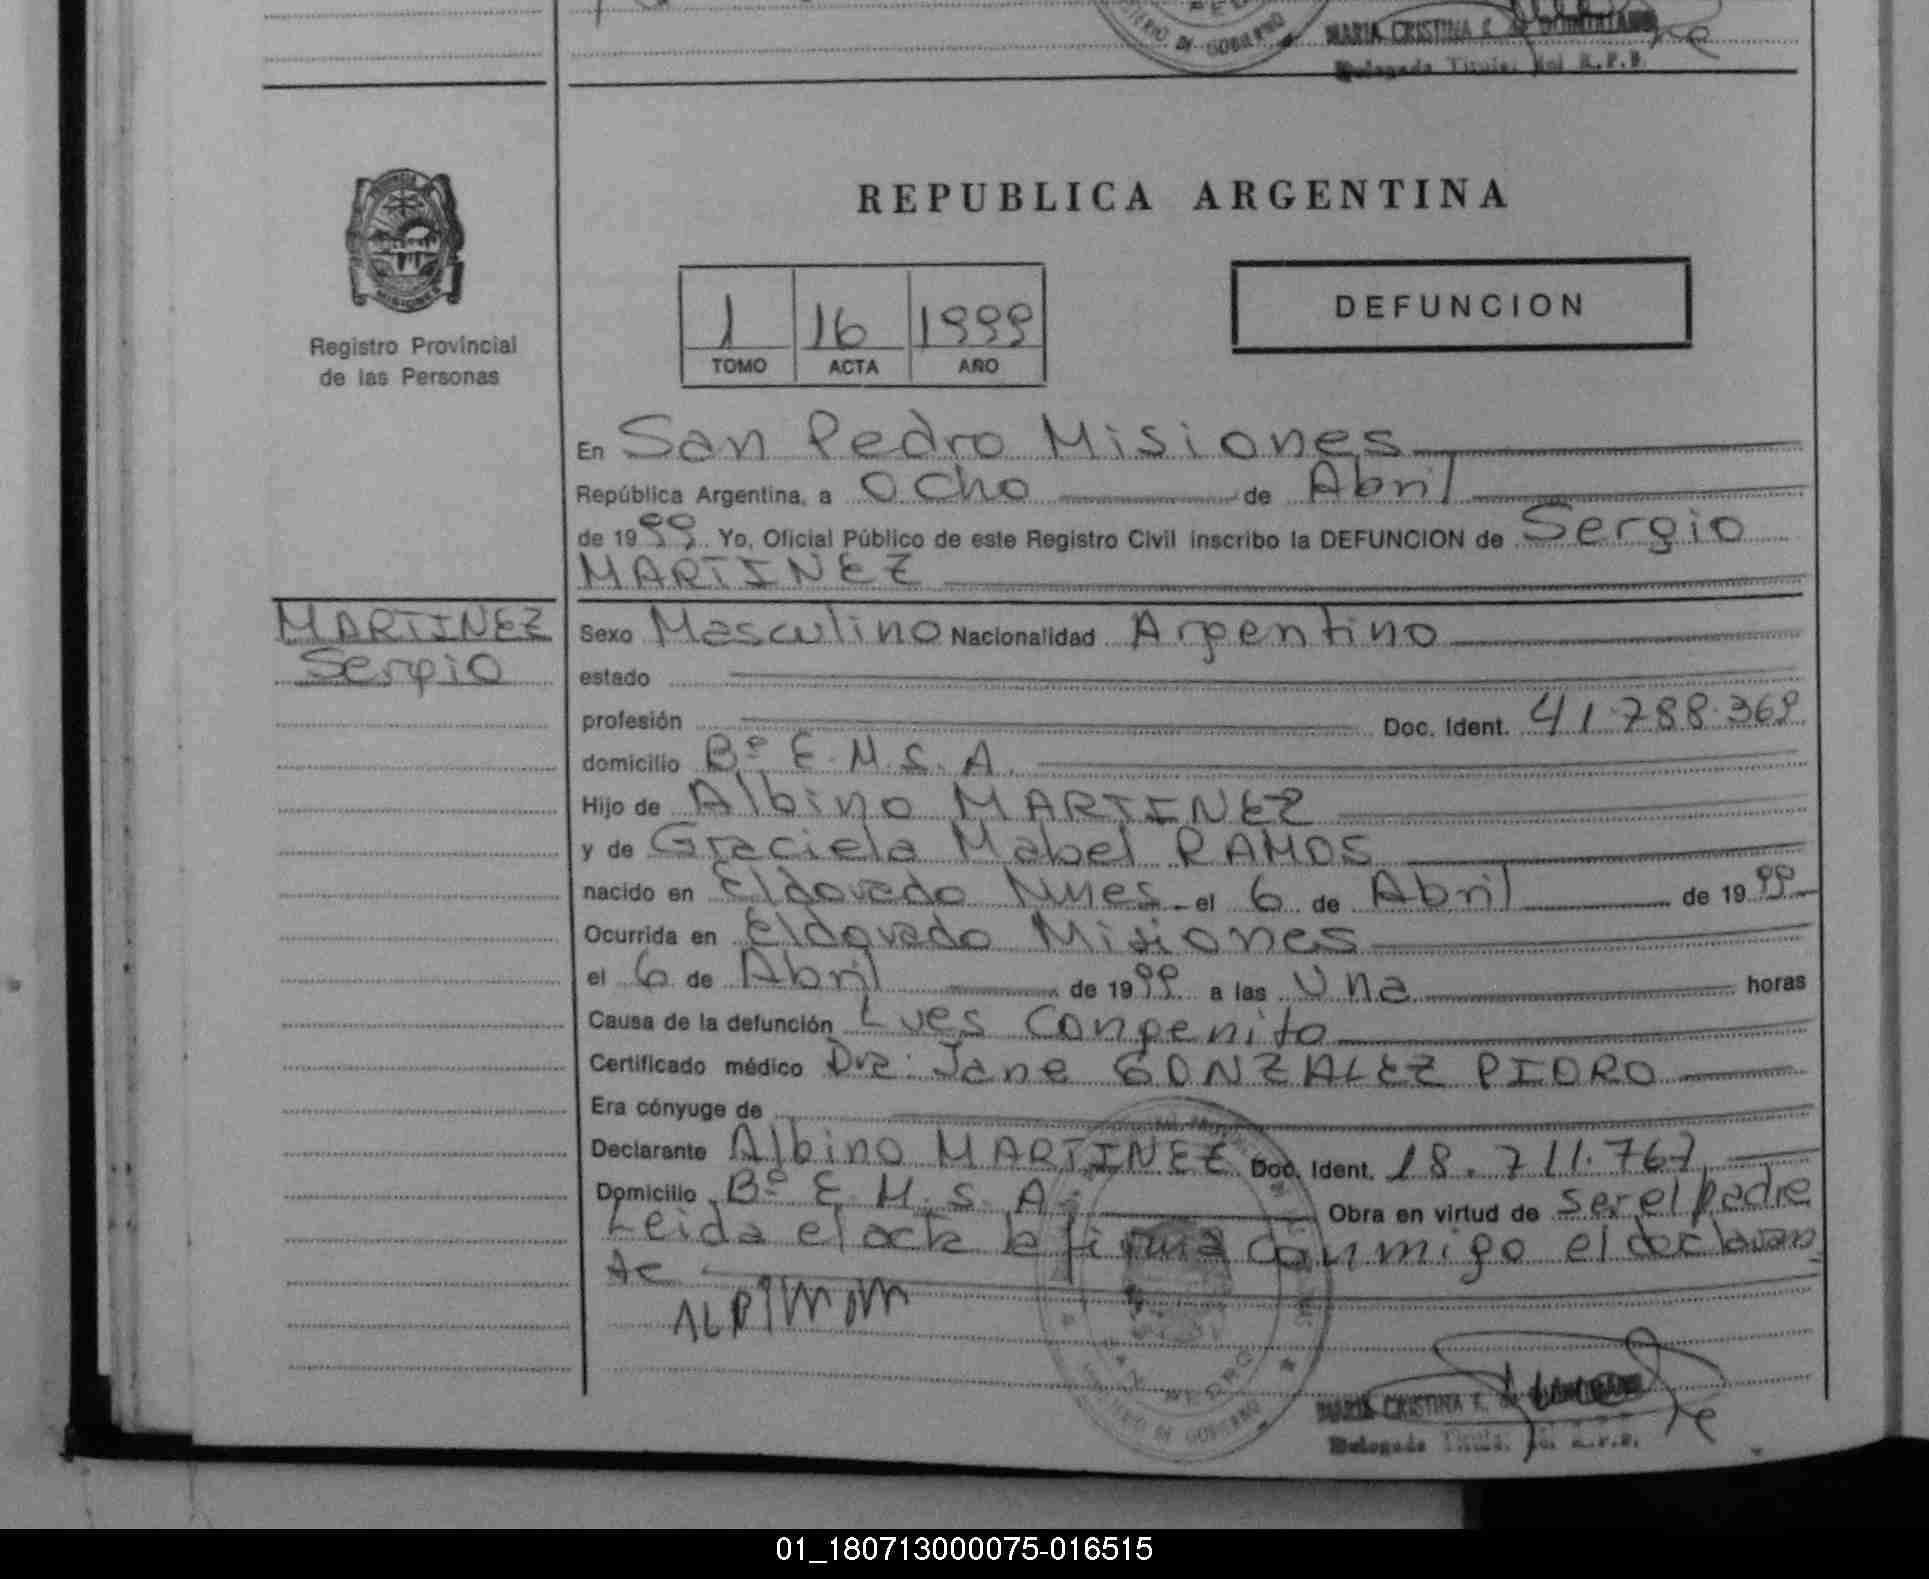 MARIA CRISTINA F. de
Delegada Titular del R.P.P.
MISIONES
Registro Provincial
de las Personas
REPUBLICA ARGENTINA
1 16 1999
TOMO ACTA AÑO
DEFUNCION
En San Pedro Misiones
República Argentina, a Ocho de Abril
de 1999 Yo, Oficial Público de este Registro Civil inscribo la DEFUNCION de Sergio
MARTINEZ
MARTINEZ
Sergio
Sexo Masculino Nacionalidad Argentino
estado
profesión Doc. Ident. 41.788.369
domicilio Bº E.M.S.A.
Hijo de Albino MARTINEZ
y de Graciela Mabel RAMOS
nacido en Eldorado Mnes el 6 de Abril de 1999
Ocurrida en Eldorado Misiones
el 6 de Abril de 1999 a las Una horas
Causa de la defunción Lues Congenito
Certificado médico Dra. Jane GONZALEZ PIDRO
Era cónyuge de
Declarante Albino MARTINEZ Doc. Ident. 18.711.767
Domicilio Bº E.M.S.A. Obra en virtud de ser el padre
Leida el acta la firma conmigo el declaran
te
SAN PEDRO
MINISTERIO DE GOBIERNO
MARIA CRISTINA F. de
Delegada Titular del R.P.P.
01_180713000075-016515